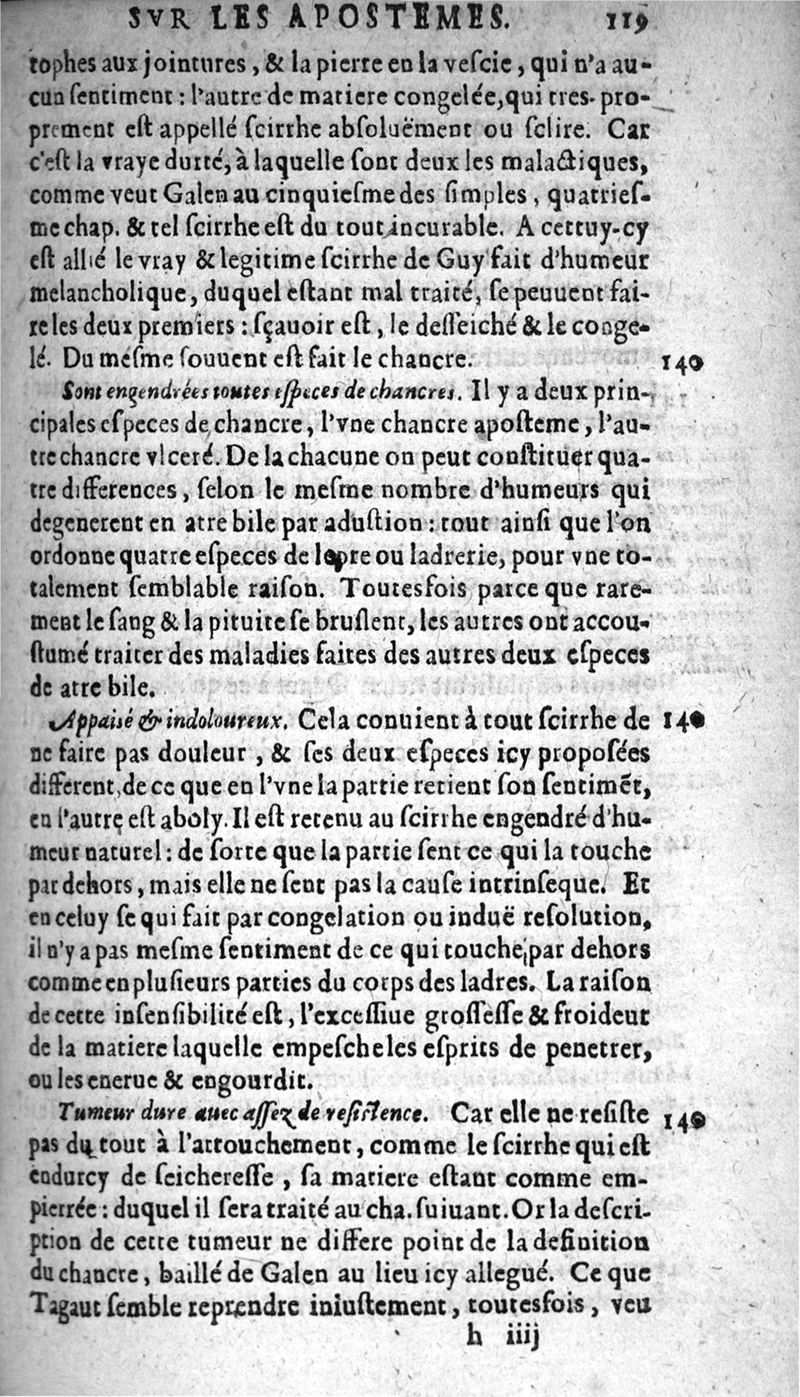 SVR LES APOSTEMES. 119
tophes aux jointures, & la pierre en la veſcie, qui n'a au-
cun ſentiment : l'autre de matiere congelée, qui tres-pro-
prement eſt appellé ſcirrhe abſoluëment ou ſclire. Car
c'eſt la vraye durté, à laquelle ſont deux les malactiques,
comme veut Galen au cinquieſme des ſimples, quatrieſ-
me chap. & tel ſcirrhe eſt du tout incurable. A cettuy-cy
eſt allié le vray & legitime ſcirrhe de Guy fait d'humeur
melancholique, duquel eſtant mal traité, ſe peuuent fai-
re les deux premiers : ſçauoir eſt, le deſſeiché & le conge-
lé. Du meſme ſouuent eſt fait le chancre. 140
Sont engendrées toutes eſpeces de chancres. Il y a deux prin-
cipales eſpeces de chancre, l'vne chancre apoſteme, l'au-
tre chancre vlceré. De la chacune on peut conſtituer qua-
tre differences, ſelon le meſme nombre d'humeurs qui
degenerent en atre bile par aduſtion : tout ainſi que l'on
ordonne quatre eſpeces de lepre ou ladrerie, pour vne to-
talement ſemblable raiſon. Toutesfois parce que rare-
ment le ſang & la pituite ſe bruſlent, les autres ont accou-
ſtumé traiter des maladies faites des autres deux eſpeces
de atre bile.
Appaiſé & indoloureux. Cela conuient à tout ſcirrhe de 140
ne faire pas douleur, & ſes deux eſpeces icy propoſées
different, de ce que en l'vne la partie retient ſon ſentimẽt,
en l'autre eſt aboly. Il eſt retenu au ſcirrhe engendré d'hu-
meur naturel : de ſorte que la partie ſent ce qui la touche
par dehors, mais elle ne ſent pas la cauſe intrinſeque. Et
en celuy ſe qui fait par congelation ou induë reſolution,
il n'y a pas meſme ſentiment de ce qui touche par dehors
comme en pluſieurs parties du corps des ladres. La raiſon
de cette inſenſibilité eſt, l'exceſſiue groſſeſſe & froideur
de la matiere laquelle empeſche les eſprits de penetrer,
ou les enerue & engourdit.
Tumeur dure auec aſſez de reſiſtence. Car elle ne reſiſte 140
pas du tout à l'attouchement, comme le ſcirrhe qui eſt
endurcy de ſeichereſſe, ſa matiere eſtant comme em-
pierrée : duquel il ſera traité au cha. ſuiuant. Or la deſcri-
ption de cette tumeur ne differe point de la definition
du chancre, baillé de Galen au lieu icy allegué. Ce que
Tagaut ſemble reprendre iniuſtement, toutesfois, veu
h iiij